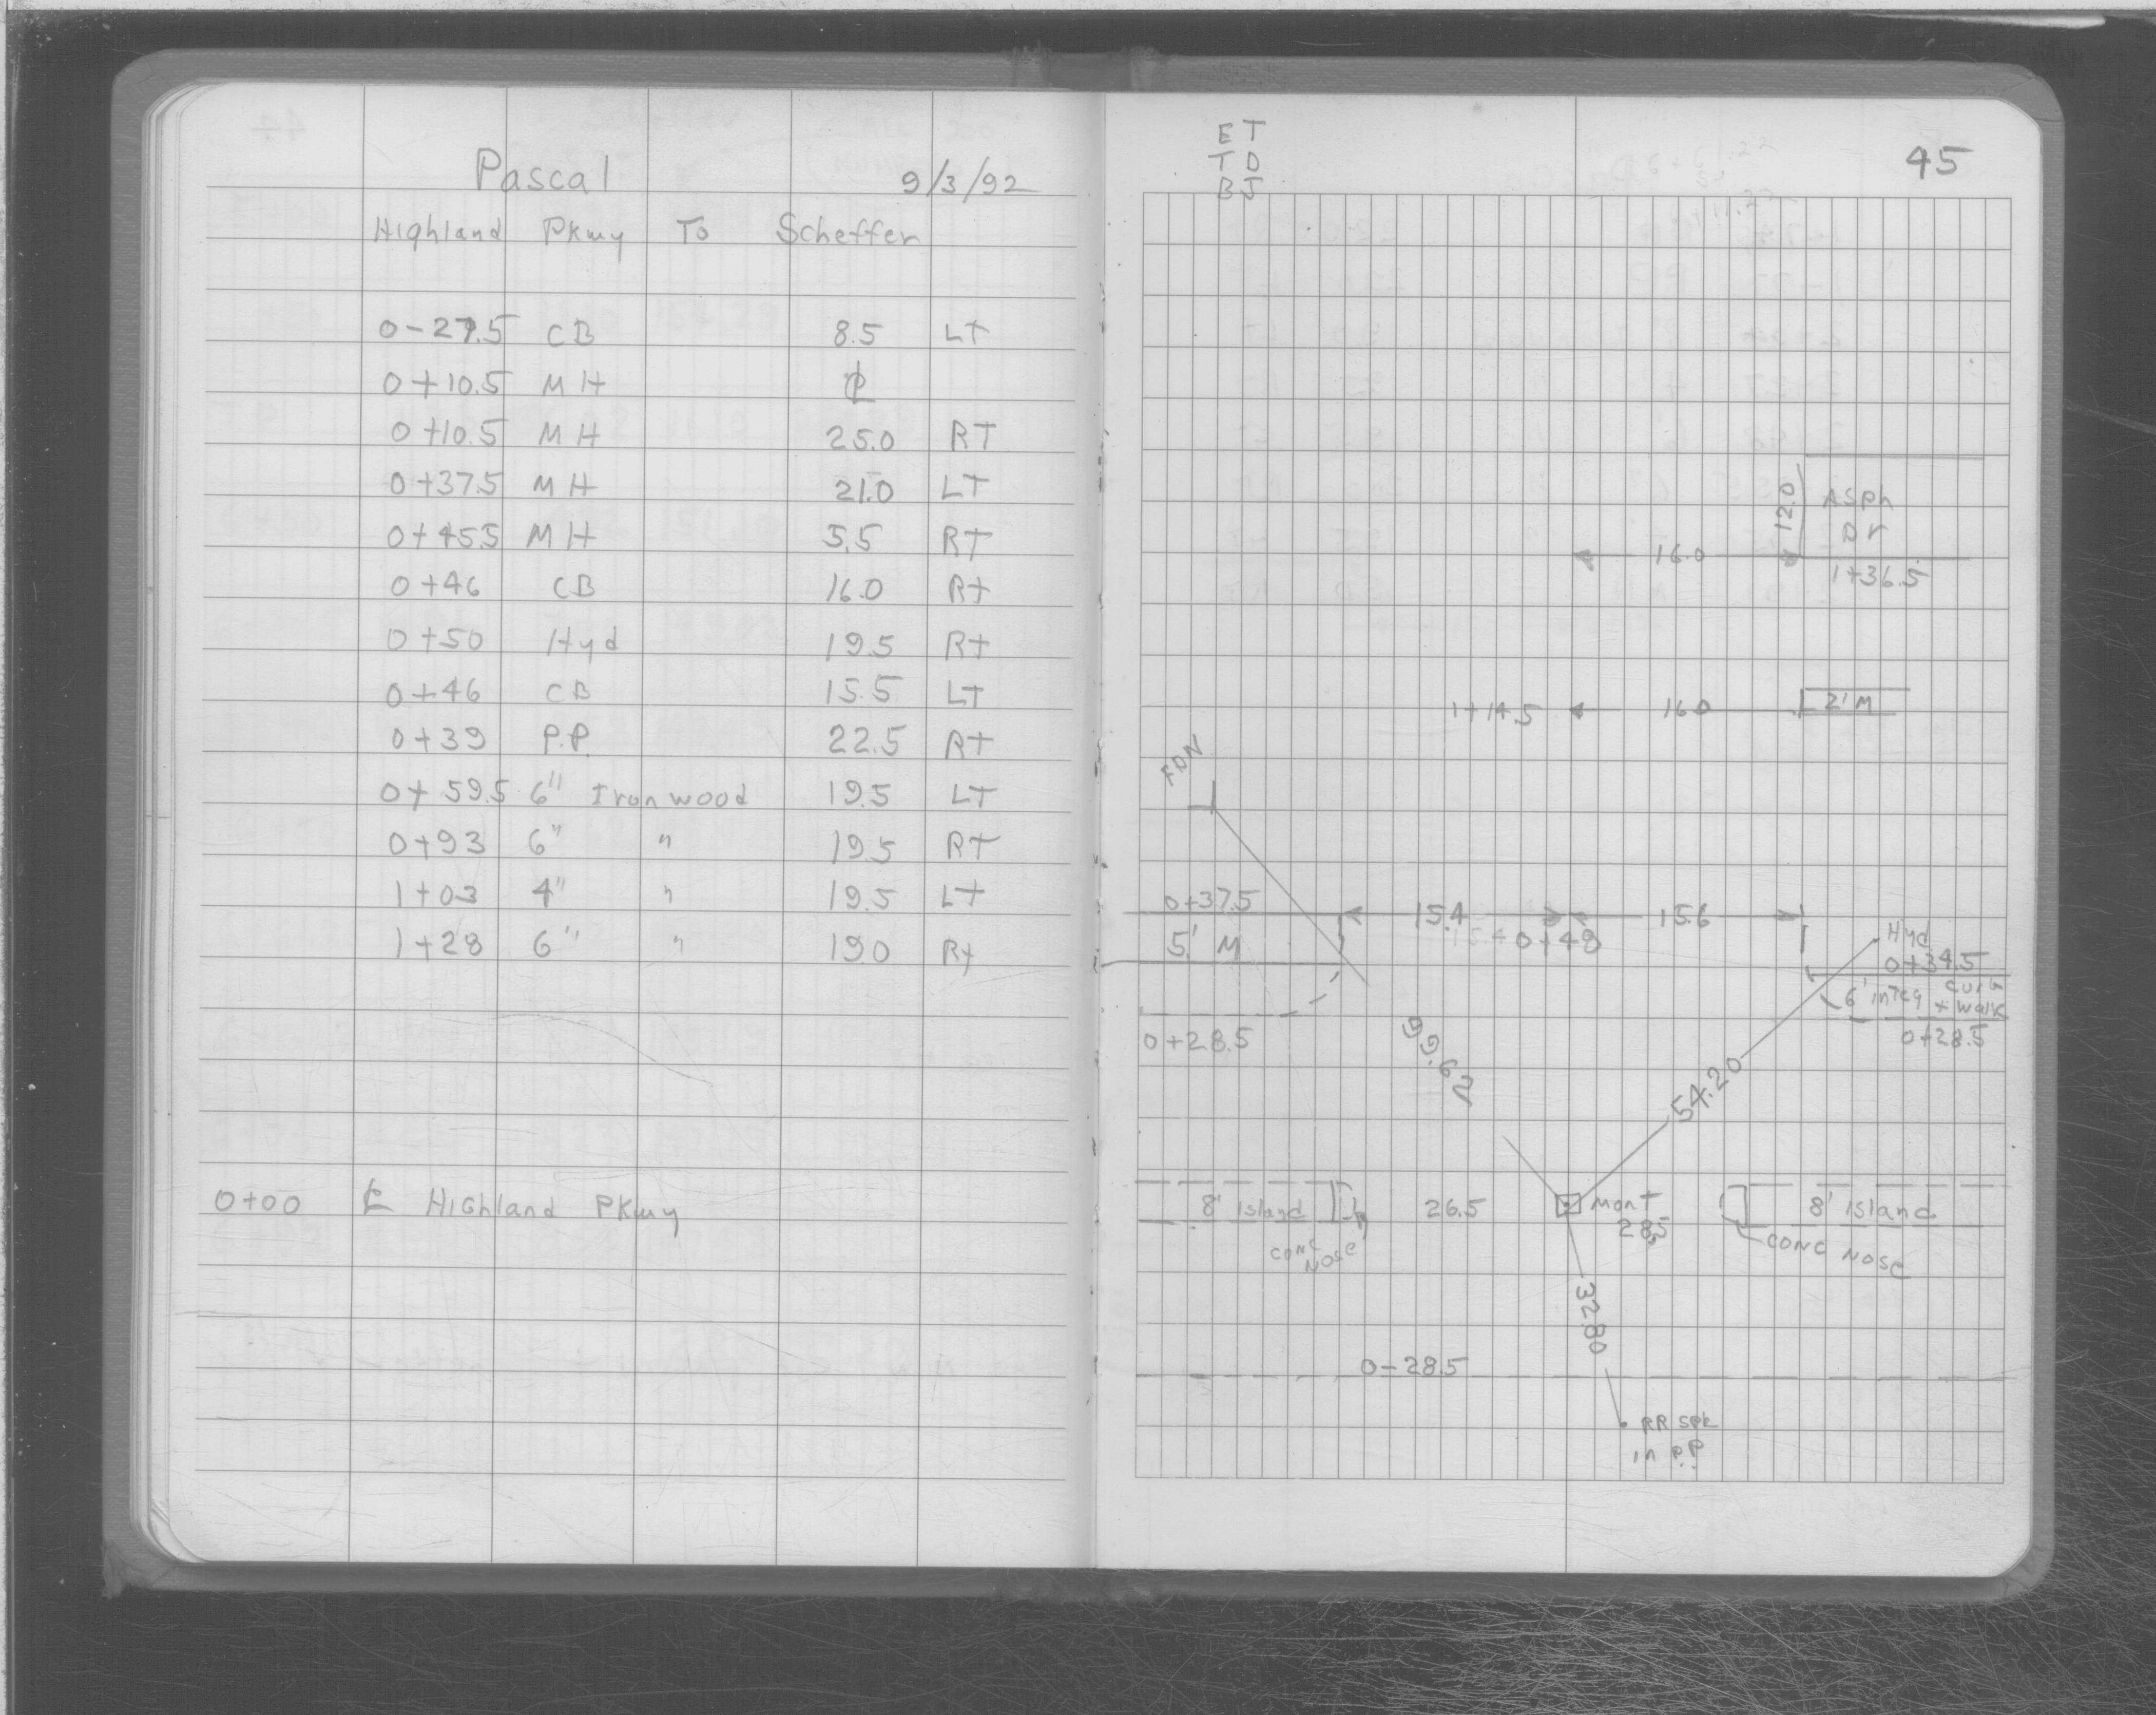 Pascal 9/3/92
Highland Pkwy To Scheffer
0-27.5 CB 8.5 LT
0+10.5 MH ℄
0+10.5 MH 25.0 RT
0+37.5 MH 21.0 LT
0+45.5 MH 5.5 RT
0+46 CB 16.0 Rt
0+50 Hyd 19.5 Rt
0+46 CB 15.5 LT
0+39 P.P. 22.5 Rt
0+59.5 6" Ironwood 19.5 LT
0+93 6" " 19.5 RT
1+03 4" " 19.5 LT
1+28 6" " 19.0 Rt
0+00 ℄ Highland PKwy
ET
TD
BJ
45
12.0 Asph
Dr
16.0
1+36.5
1+14.5 16.0 2' M
FDN
0+37.5 15.4 15.6
5' M 15.4 0+48
Hyd
0+34.5
6' integ curb
+ walk
0+28.5 0+28.5
99.62
54.20
8' Island 26.5 Mont 8' Island
28.5
conc
Nose
conc Nose
32.80
0-28.5
RR spk
in P.P.